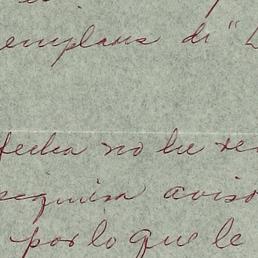 emplares de "L
fecha no he re
esquira aviso
por lo que le